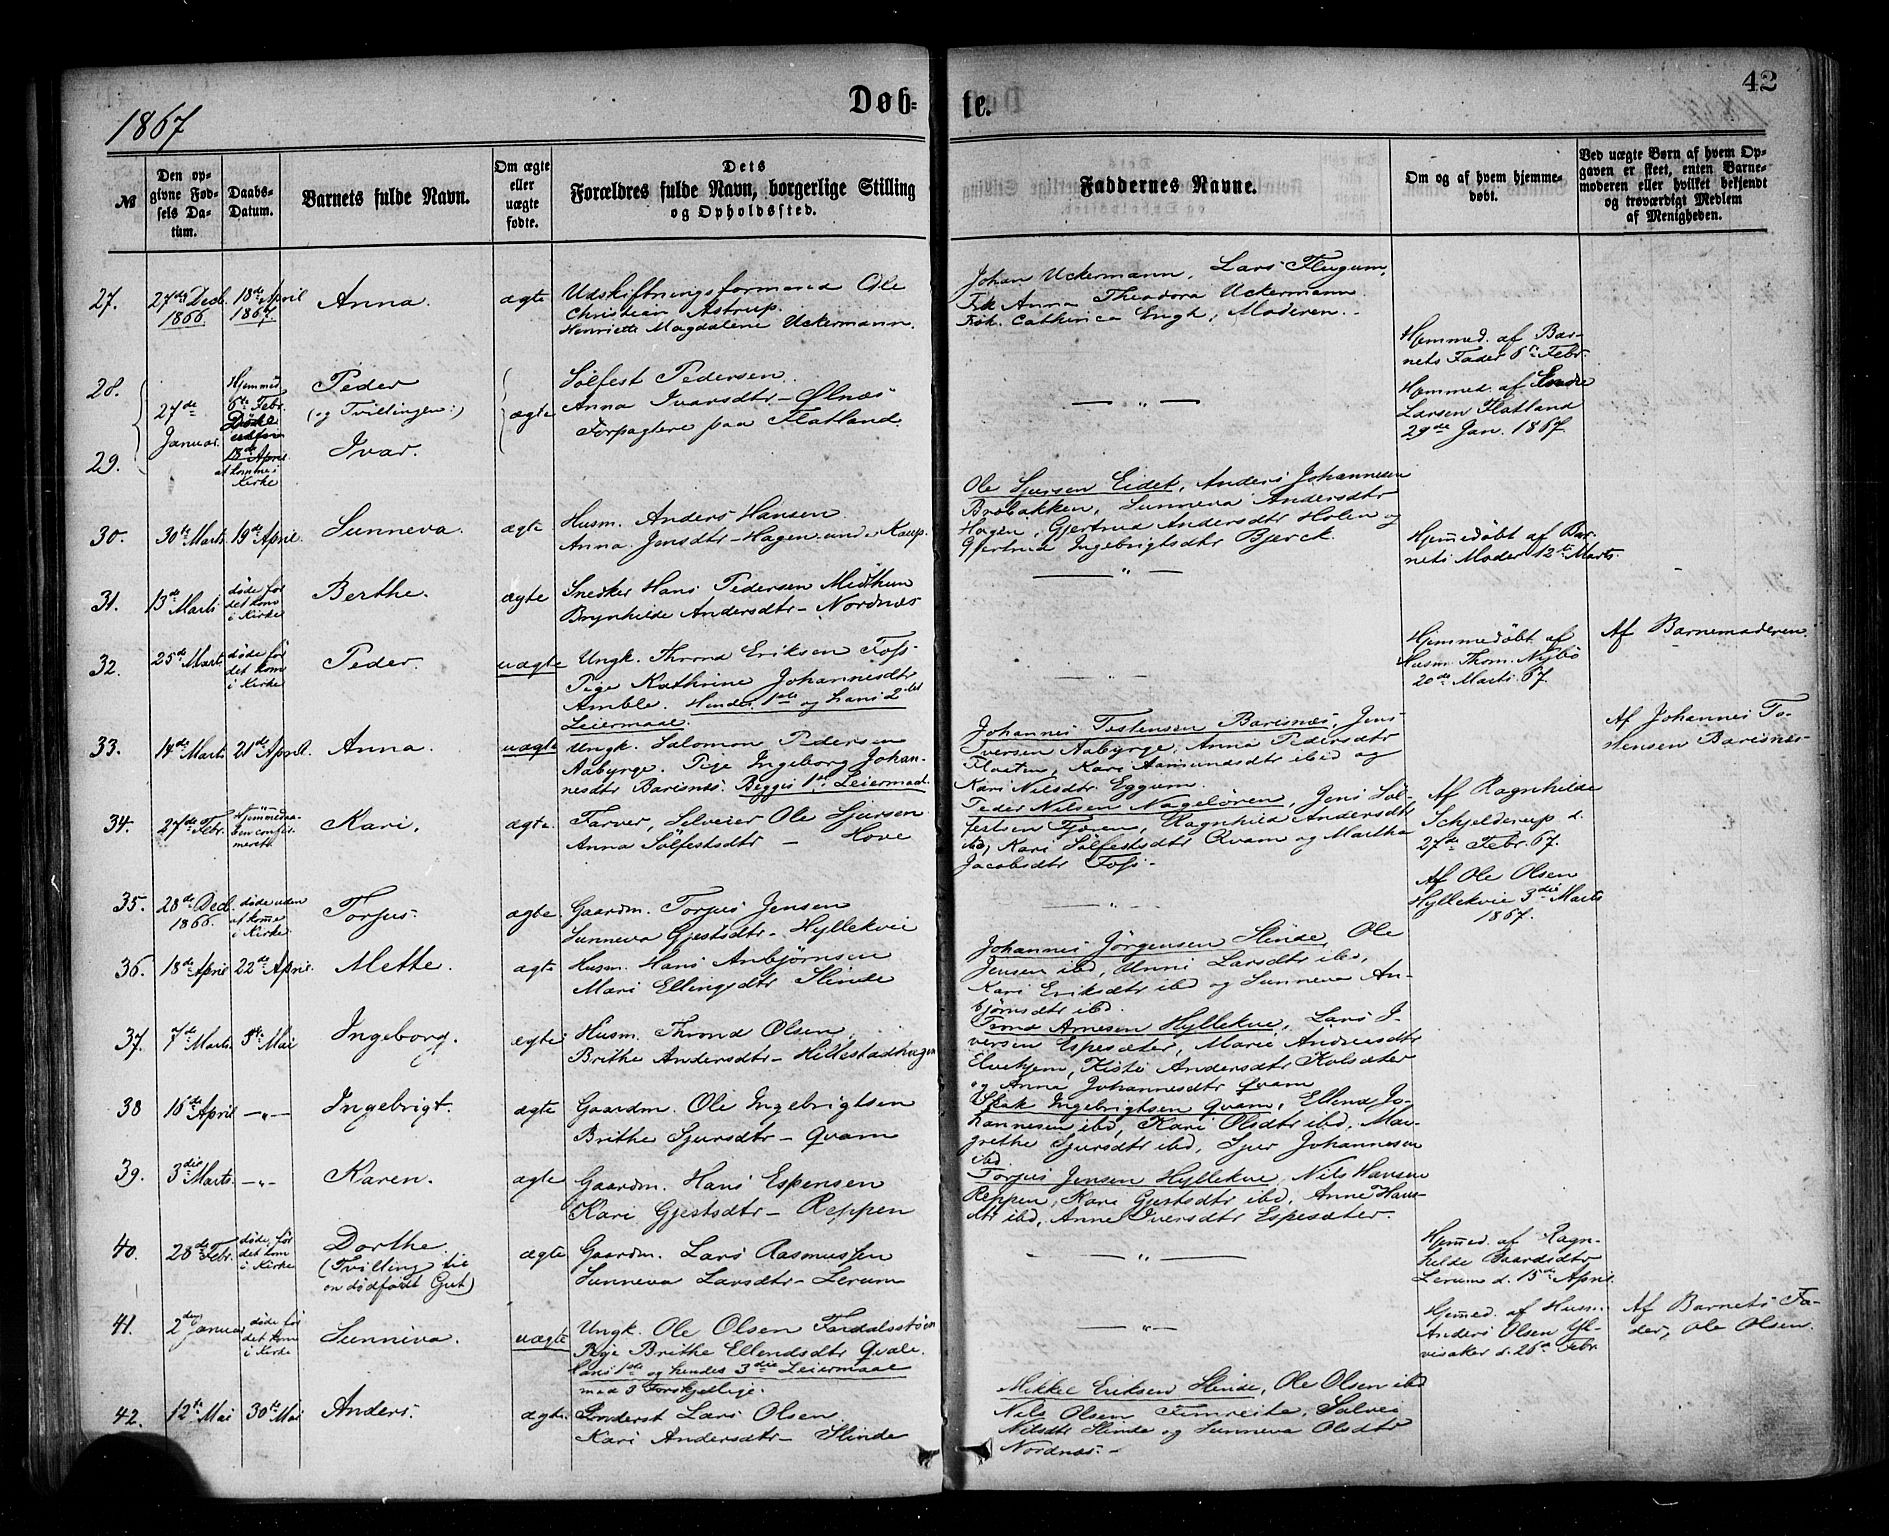 1867
Døb-
te.
42
№
Den op-
givne Fød-
sels Da-
tum.
Daabs-
Datum.
Barnets fulde Navn.
Om ægte
eller
uægte
fødte.
Dets
Forældres fulde Navn, borgerlige Stilling
og Opholdssted.
Faddernes Navne.
Om og af hvem hjemme-
døbt.
Ved uægte Børn af hvem Op-
gaven er skeet, enten Barne-
moderen eller hvilket bekjendt
og troværdigt Medlem
af Menigheden.
27.
27de Decb.
1866
18de April
1867
Anna.
ægte
Udskiftningsformand Ole
Christian Astrup.
Henriette Magdalene Uckermann.
Johan Uckermann, Lars Flugum,
Frk Anna Theodora Uckermann
Frøk. Cathinca Engh, Moderen.
28.
29.
27de
Januar.
Hjemmed.
6te Febr.
Døde
uden
18de April
at komme i
Kirke
Peder
(og Tvillingen:)
Ivar.
ægte
Sølfest Pedersen
Anna Ivarsdtr - Ølnæs
Forpagtere paa Flatland
— „ —
Hjemmed. af Bar-
nets Fader 6te Febr.
Hjemmed. af Endre
Larsen Flatland
29de Jan. 1867.
30.
30te Marts
19de April
Sunneva.
ægte
Husm. Anders Hansen
Anna Jensdtr - Hagen und. Kaup.
Ole Sjursen Eidet, Anders Johannesen
Brobakken, Sunneva Andersdtr
Hagen, Gjertrud Andersdtr Holen og
Gjertrud Ingebrigtsdtr Bjørck.
31.
13de Marts
døde før
det kom
i Kirke
Berthe.
ægte
Snedker Hans Pedersen Midthun
Brynhilde Andersdtr - Nordnæs
— „ —
Hjemmedøbt af Bar-
nets Moder 12te Marts.
32.
25de Marts
døde før
det kom
i Kirke
Peder.
uægte
Ungk. Thrond Eriksen Foss
Pige Kathrine Johannesdtr
Amble. Hendes 1ste og hans 2det
Leiermaal.
— „ —
Hjemmedøbt af
Husm. Thom. Nybø
20de Marts 67.
Af Barnemoderen.
33.
14de Marts
21de April.
Anna.
uægte
Ungk. Salomon Pedersen
Aabyrge. Pige Ingeborg Johan-
nesdtr Barsnes. Begges 1ste Leiermaal.
Johannes Tostensen Barsnæs, Jens
Iversen Aabyrge, Anna Pedersdtr
Floeten, Kari Aamundsdtr ibid og
Kari Nilsdtr Eggum.
Af Johannes To-
stensen Barsnæs
34.
27de Febr.
Hjemmedaa-
ben confir-
meret.
Kari.
ægte.
Farver, Selveier Ole Sjursen
Anna Sølfestsdtr - Hove
Peder Nilsen Nageløren, Jens Søl-
festsen Fjæren, Ragnhild Andersdtr
ibd, Kari Sølfestsdtr Qvam og Martha
Jacobsdtr Foss.
Af Ragnhilde
Schjelderup d.
27de Febr. 67.
35.
28de Decb.
1866.
døde uden
at komme
i Kirke
Torjus.
ægte
Gaardm. Torjus Jensen
Sunneva Gjestsdtr - Hyllekvie
— „ —
Af Ole Olsen
Hyllekvie 3die Marts
1867.
36.
18de April
22de April.
Mette.
ægte
Husm. Hans Anbjørnsen
Mari Ellingsdtr Slinde
Johannes Jørgensen Slinde, Ole
Jensen ibd, Unni Larsdtr ibd,
Kari Eriksdtr ibd og Sunneva An-
bjørnsdtr ibd.
37.
7de Marts.
5te Mai
Ingeborg.
ægte
Husm. Thrond Olsen
Brithe Andersdtr - Hillestadhagen
Trond Arnesen Hyllekvie, Lars I-
versen Espesæter, Marie Andreasdtr
Elvekjem, Kisti Andersdtr Kolsæter
og Anna Johannesdtr Qvam
38
16de April
— „ —
Ingebrigt.
ægte
Gaardm. Ole Ingebrigtsen
Brithe Sjursdtr - Qvam
Ingebrigtsen Qvam, Ellend Jo-
hannesen ibd, Kari Olsdtr ibd, Mar-
grethe Sjursdtr ibd, Sjur Johannesen
ibd.
39.
3die Marts.
— „ —
Karen.
ægte
Gaardm. Hans Espensen
Kari Gjestsdtr - Reppen
Torjus Jensen Hyllekvie, Nils Hansen
Reppen, Kari Gjestsdtr ibd, Anne Hans-
dtr ibd, Anne Iversdtr Espesæter.
40.
28de Febr.
døde, før
det kom
i Kirke
Dorthe
(Tvilling til
en dødfødt Gut)
ægte
Gaardm. Lars Rasmussen
Sunneva Larsdtr - Lerum
— „ —
Hjemed. af Ragn-
hilde Baardsdtr
Lerum d. 15de April.
41.
2den Januar
døde før
det kom
i Kirke
Sunniva.
uægte
Ungk. Ole Olsen Fardalsstøen
Pige Brithe Ellendsdtr Qvale.
Hans 1ste og hendes 3die Leiermaal
med 3 Forskjellige.
— „ —
Hjemed. af Husm.
Anders Olsen Yl-
visaker d. 26de Febr
Af Barnets Fa-
der, Ole Olsen.
42.
12te Mai
30te Mai
Anders.
ægte.
Inderst Lars Olsen
Kari Andersdtr - Slinde
Mikkel Eriksen Slinde, Ole Olsen ibd
Nils Olsen Fimreite, Salvei
Nilsdtr Slinde og Sunneva Olsdtr
Nordnæs.